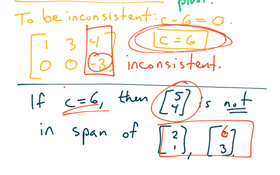 To be inconsistent: c-6 = 0.
[1 3 4] c=6
[0 0 -3] inconsistent.
If c=6, then [5 4] is not
in span of [2 1], [6 3].